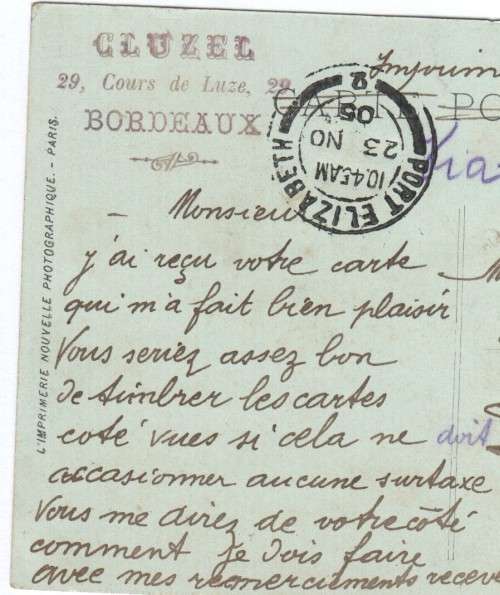 CLUZEL
29, Cours de Luze, 29
BORDEAUX
Imprim
CARTE PO
PORT ELIZABETH
10.45AM
23 NO
05
2
Via
L'IMPRIMERIE NOUVELLE PHOTOGRAPHIQUE. - PARIS.
Monsieur
j'ai reçu votre carte
qui m'a fait bien plaisir
Vous seriez assez bon
de timbrer les cartes
coté vues si cela ne doit
occasionner aucune surtaxe
Vous me direz de votre côté
comment je dois faire
avec mes remerciements receve